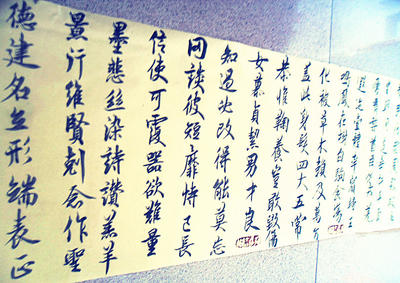 遐邇壹體率賓歸王
鳴鳳在樹白駒食場
化被草木賴及萬方
蓋此身髮四大五常
恭惟鞠養豈敢毀傷
女慕貞絜男才良
知過必改得能莫忘
罔談彼短靡恃己長
信使可覆器欲難量
墨悲絲染詩讚羔羊
景行維賢剋念作聖
德建名立形端表正